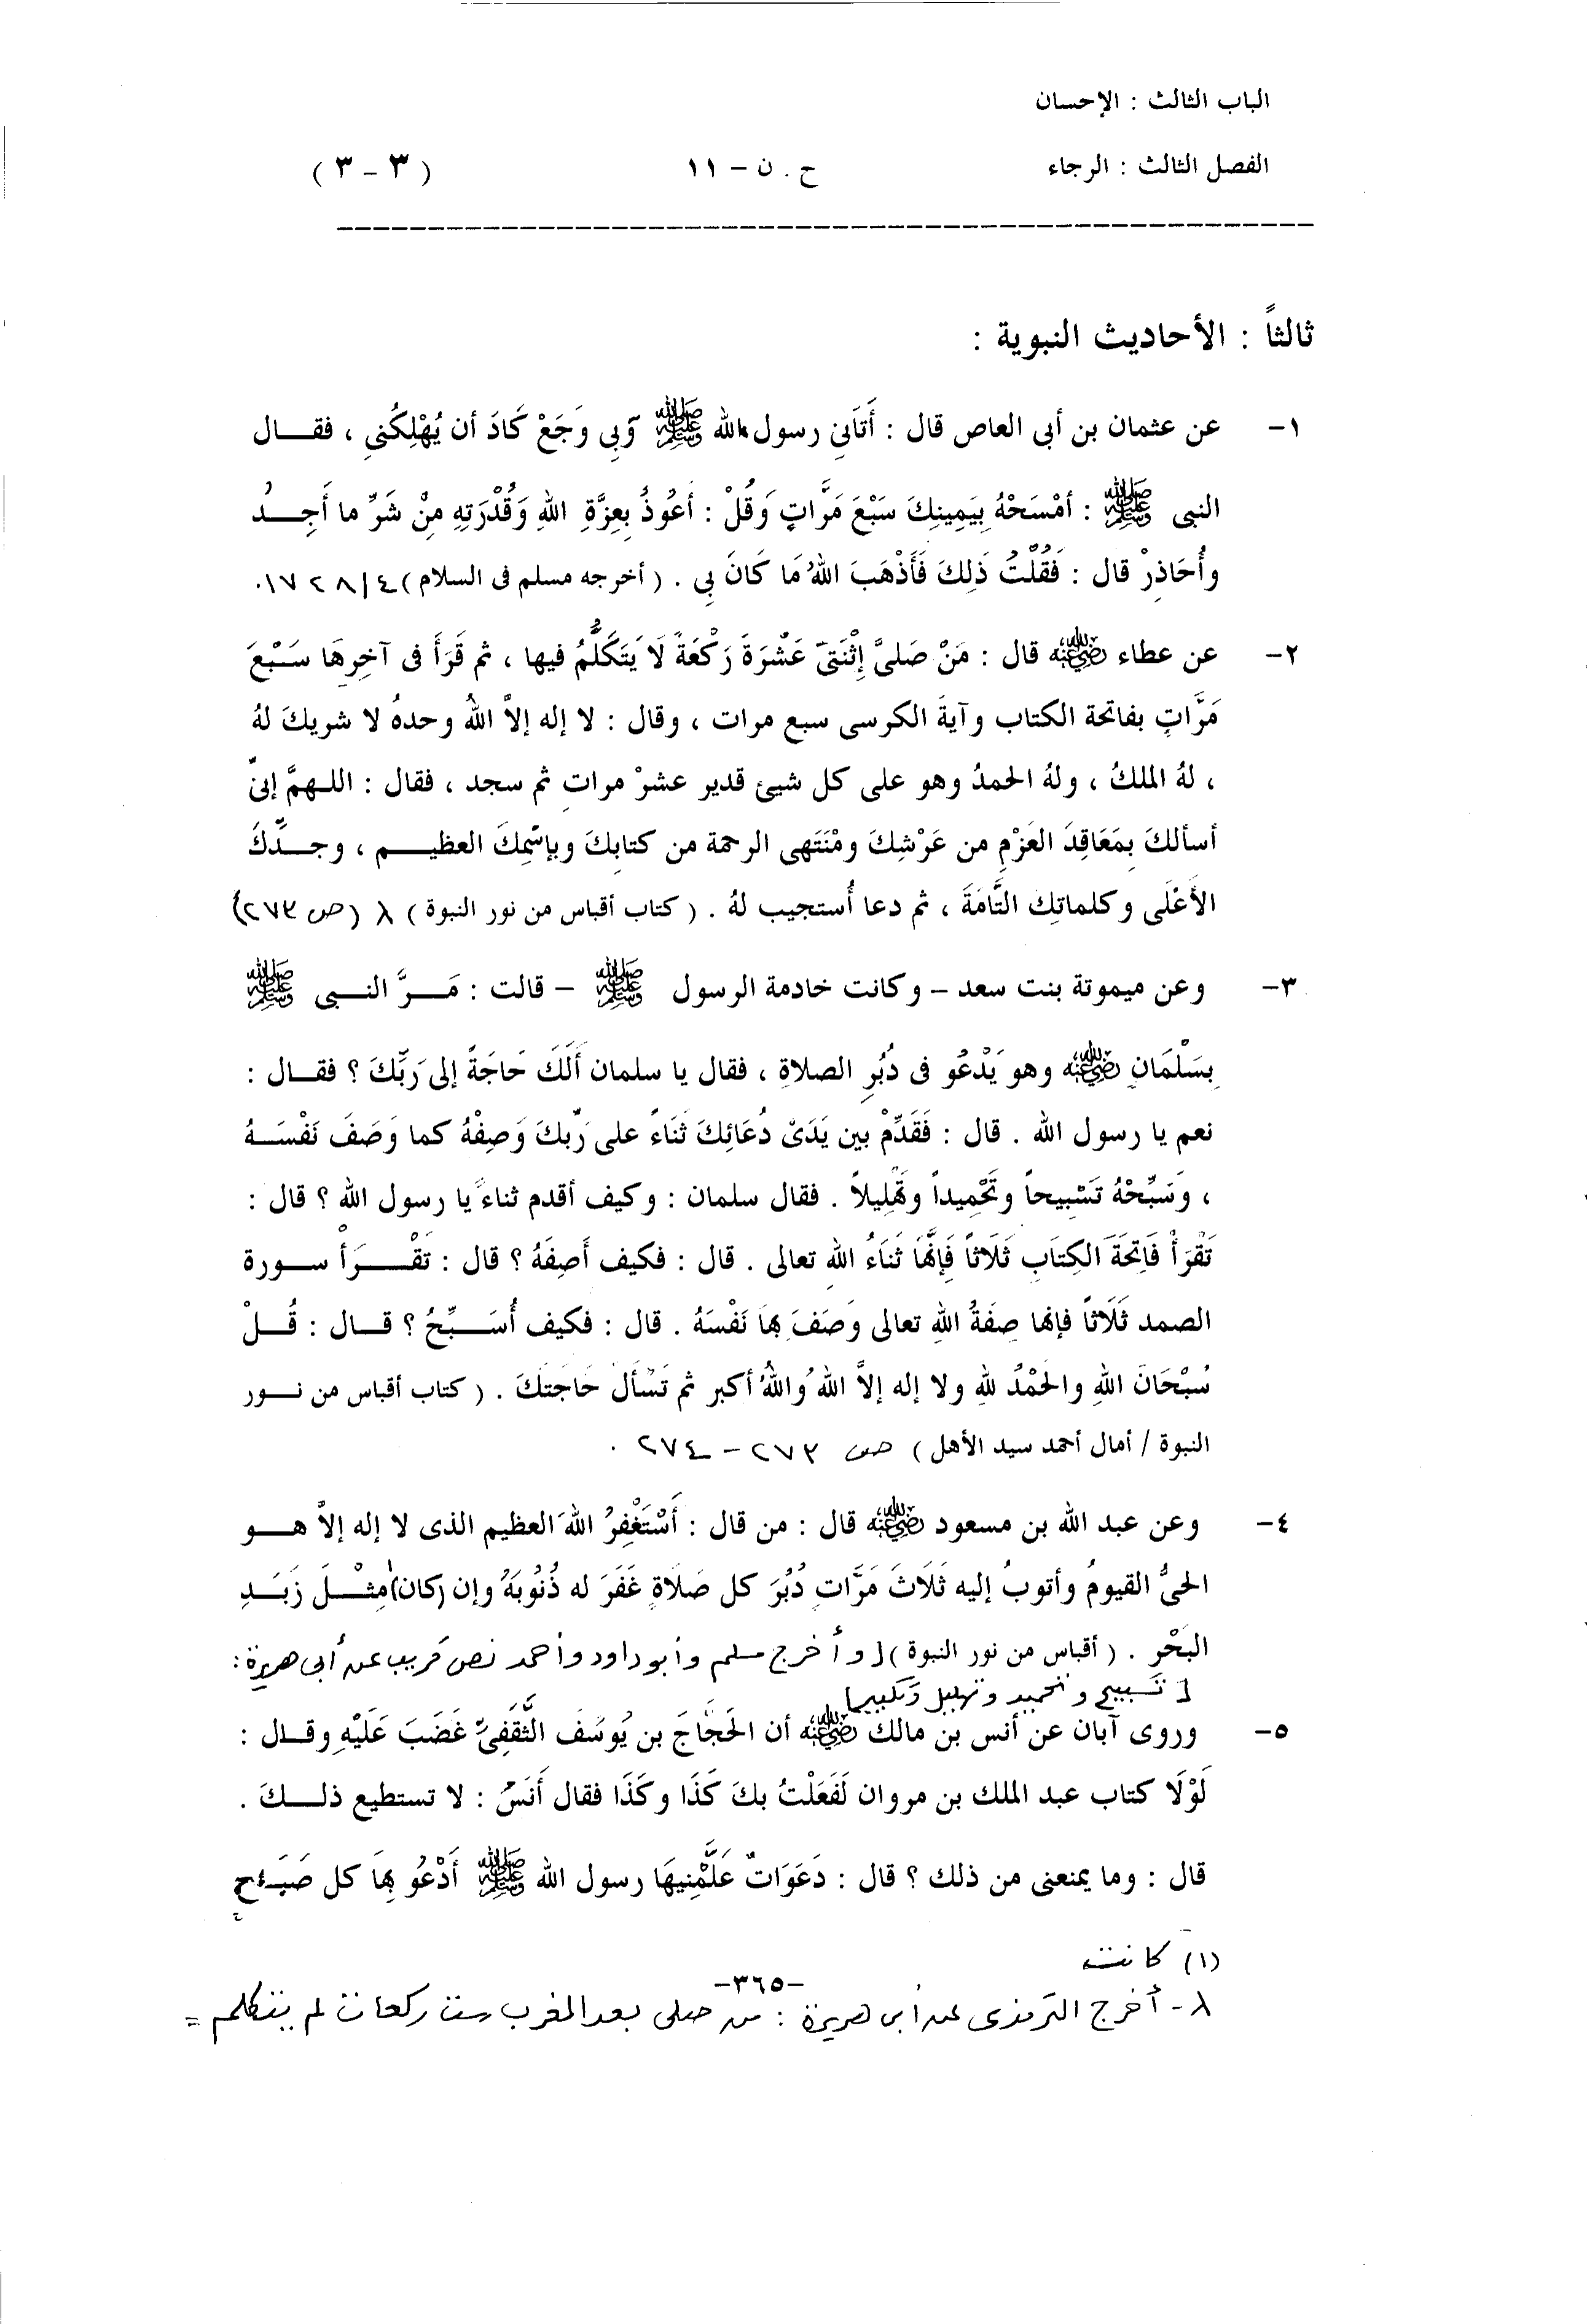 الباب الثالث : الإحسان
الفصل الثالث : الرجاء ح . ن – ١١ ( ٣ – ٣ )
ثالثاً : الأحاديث النبوية :
١– عن عثمان بن أبى العاص قال : أَتَانِى رسول الله ﷺ وَبِى وَجَعْ كَادَ أن يُهْلِكُنِى ، فقـــال
النبى ﷺ : أمْسَحْهُ بِيَمِينِكَ سَبْعَ مَرَّاتٍ وَقُلْ : أعُوذُ بِعِزَّةِ اللهِ وَقُدْرَتِهِ مِنْ شَرِّ ما أَجِـــدُ
وأُحَاذِرْ قال : فَقُلْتُ ذَلِكَ فَأَذْهَبَ اللهُ مَا كَانَ بِى . ( أخرجه مسلم فى السلام ) ٤/ ١٧٢٨ .
٢– عن عطاء ﵁ قال : مَنْ صَلىَّ إثْنَتىَ عَشْرَةَ رَكْعَةً لَا يَتَكَلَّمُ فيها ، ثم قَرَأَ فى آخِرِهَا سَبْعَ
مَرَّاتٍ بفاتحة الكتاب وآيةَ الكرسى سبع مرات ، وقال : لا إله إلاَّ اللهُ وحدهُ لا شريكَ لهُ
، لهُ الملكُ ، ولهُ الحمدُ وهو على كل شيئ قدير عشرْ مراتٍ ثم سجد ، فقال : اللـهمَّ إنىِّ
أسألكَ بِمَعَاقِدَ العَزْمِ من عَرْشِكَ ومْنَتَهى الرحمة من كتابِكَ وبإسْمِكَ العظيـــم ، وجـــدِّكَ
الأَعْلَى وكلماتِكَ التَّامَةَ ، ثم دعا أُستجيب لهُ . ( كتاب أقباس من نور النبوة ) ٨ (ص ٢٧٣)
٣– وعن ميموتة بنت سعد – وكانت خادمة الرسول ﷺ – قالت : مَـــرَّ النـــبى ﷺ
بِسَلْمَانِ ﵁ وهو يَدْعُو فى دُبُرِ الصلاةِ ، فقال يا سلمان أَلَكَ حَاجَةً إلى رَبِّكَ ؟ فقـــال :
نعم يا رسول الله . قال : فَقَدِّمْ بين يَدَىْ دُعَائِكَ ثَنَاءً على رَّبكَ وَصِفْهُ كما وَصَفَ نَفْسَـــهُ
، وَسَبِّحْهُ تَسْبِيحاً وتَحْمِيداً وتَهْلِيلاً . فقال سلمان : وكيف أقدم ثناءً يا رسول الله ؟ قال :
تَقْرَأْ فَاتِحَةَ الكِتَابِ ثَلَاثاً فَإِنَّهَا ثَنَاءُ اللهِ تعالى . قال : فكيف أَصِفَهُ ؟ قال : تَقْـــرَأْ ســـورة
الصمد ثَلَاثاً فإنها صِفَةُ اللهِ تعالى وَصَفَ بِهَا نَفْسَهُ . قال : فكيف أُسَـــبِّحُ ؟ قـــال : قُـــلْ
سُبْحَانَ اللهِ والحَمْدُ للهِ ولا إله إلاَّ اللهُ واللهُ أكبر ثم تَسْألَ حَاجَتَكَ . ( كتاب أقباس من نـــور
النبوة / أمال أحمد سيد الأهل ) ص ٢٧٣ – ٢٧٤ .
٤– وعن عبد الله بن مسعود ﵁ قال : من قال : أَسْتَغْفِرُ اللهَ العظيم الذى لا إله إلاَّ هـــو
الحىُّ القيومُ وأتوبُ إليه ثَلَاثَ مَرَّاتٍ دُبُرَ كل صَلَاةٍ غَفَرَ له ذُنُوبَهُ وإن (كان)١ مِثْـــلَ زَبَـــدِ
البَحْرِ . ( أقباس من نور النبوة ) [ وأخرج مسلم وأبو داود وأحمد نص قريب عن أبى هريرة :
[ تسبيح وتحميد وتهليل وتكبير ]
٥– وروى آبان عن أنس بن مالك ﵁ أن الحَجَّاجَ بن يُوسُفَ الثَّقَفِىِّ غَضَبَ عَلَيْهِ وقـــال :
لَوْلَا كتاب عبد الملك بن مروان لَفَعَلْتُ بكَ كَذَا وكَذَا فقال أَنَسْ : لا تستطيع ذلـــكَ .
قال : وما يمنعنى من ذلك ؟ قال : دَعَوَاتٌ عَلَّمْنِيهَا رسول الله ﷺ أَدْعُو بِهَا كل صَبَـاحٍ
(١) كانت
–٣٦٥–
٨- أخرج الترمذى عن أبى هريرة : من صلى بعد المغرب ست ركعات لم يتكلم =